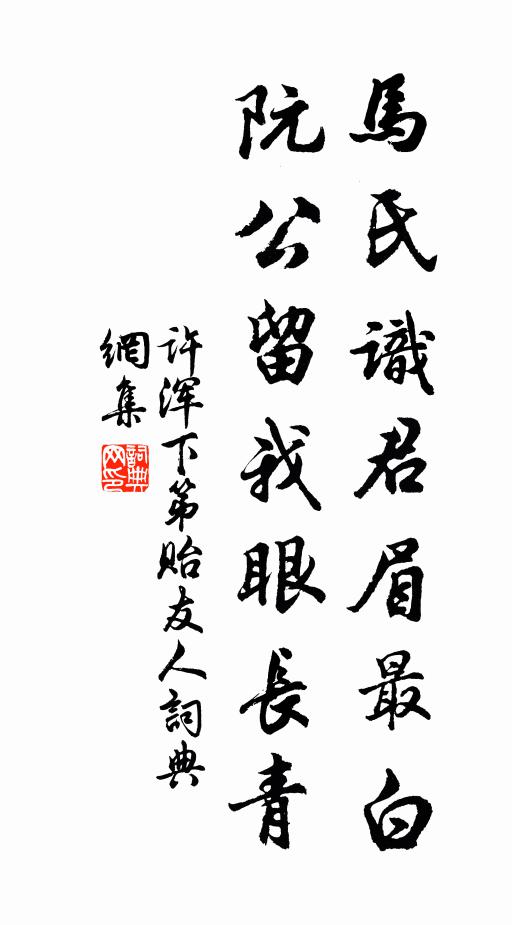 馬氏識君眉最白
阮公留我眼長青
許渾下第貽友人詞典
網集
詞典
网印